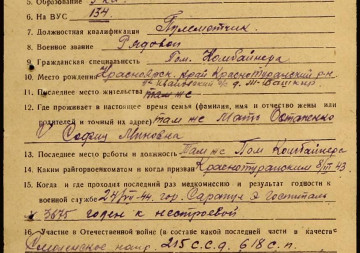 5. Образование 3 кл.
6. На ВУС 134
7. Должностная квалификация Пулеметчик
8. Военное звание Рядовой
9. Гражданская специальность Пом. Комбайнера
10. Место рождения Красноярск. край Краснотуранский р-н
11. Последнее место жительства там же
12. Где проживает в настоящее время семья (фамилия, имя и отчество жены или
родителей и точный их адрес) там же Мать Остапенко
София Миновна
13. Последнее место работы и должность Там же Пом Комбайнера
14. Каким райгорвоенкоматом и когда призван Краснотуранским 8/III 43
15. Когда и где проходил последний раз медкомиссию и результат годности к
военной службе 24/VII-44. гор. Сарапул Э Госпиталь
3675 годен к нестроевой
16. Участие в Отечественной войне (в составе какой последней части в качестве
Смоленское напр. 215 с.с.д. 618 с.п.